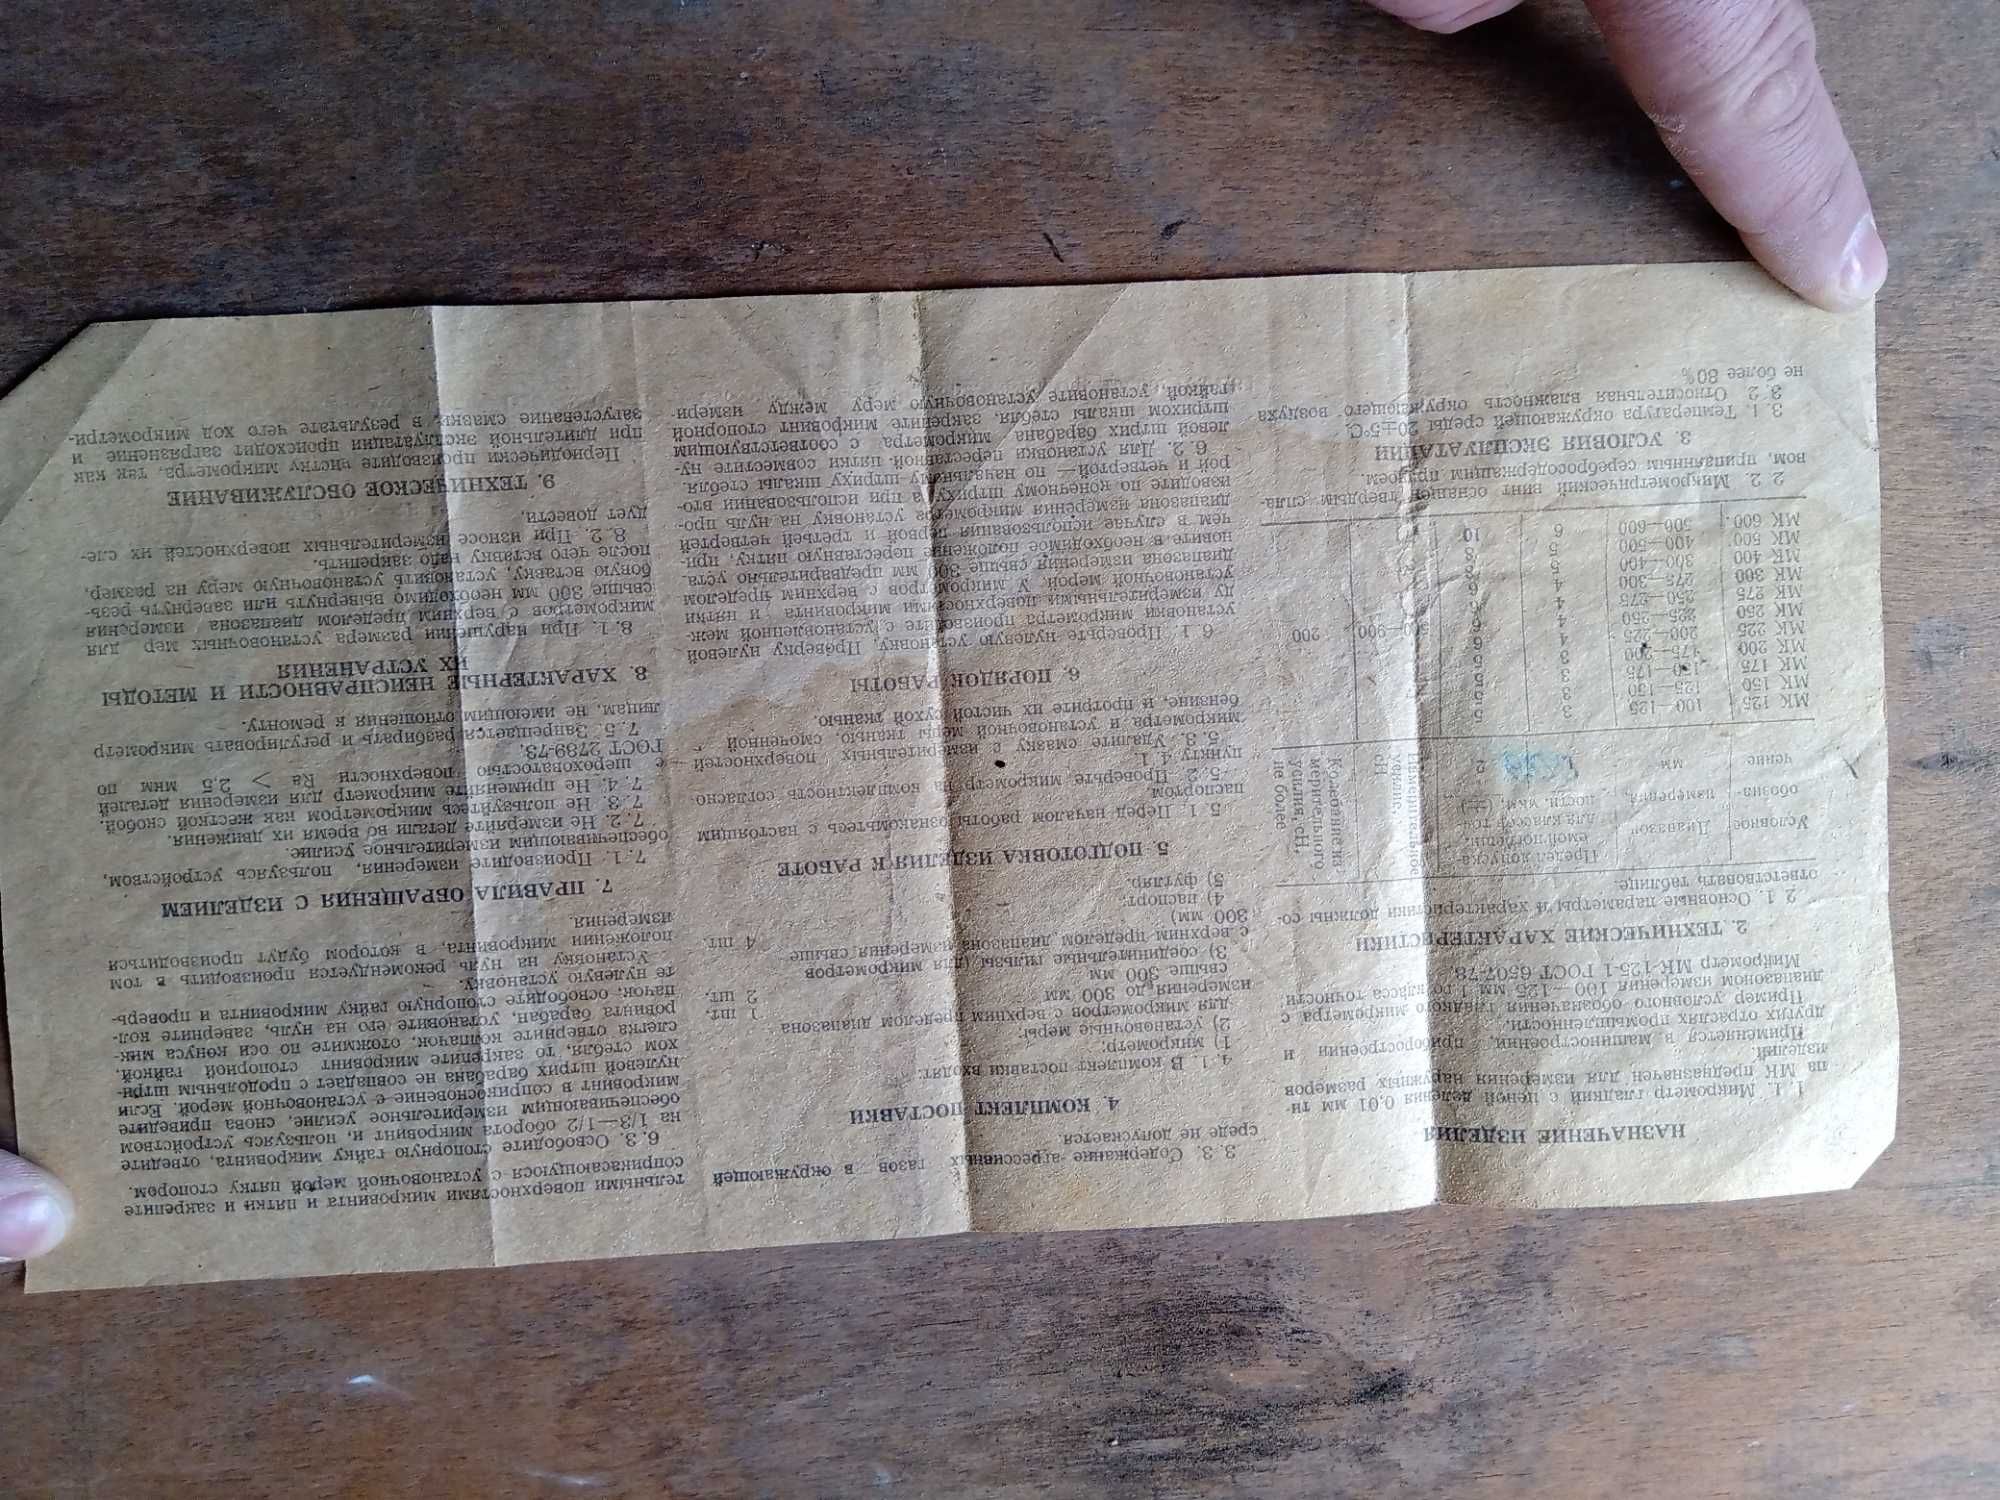 НАЗНАЧЕНИЕ ИЗДЕЛИЯ
1. 1. Микрометр гладкий с ценой деления 0,01 мм ти-
па МК предназначен для измерения наружных размеров
изделий.
Применяется в машиностроении, приборостроении и
других отраслях промышленности.
Пример условного обозначения гладкого микрометра с
диапазоном измерения 100—125 мм 1-го класса точности
Микрометр МК-125-1 ГОСТ 6507-78.
2. ТЕХНИЧЕСКИЕ ХАРАКТЕРИСТИКИ
2. 1. Основные параметры и характеристики должны со-
ответствовать таблице.
Условное обозна- чение
Диапазон измерения, мм
Предел допуска- емой погрешн. для класса точ- ности, мкм, (±)
2
Измерительное усилие, сН
Колебание из- мерительного усилия, сН, не более
МК 125 100—125 3 5
МК 150 125—150 3 5
МК 175 150—175 3 5
МК 200 175—200 3 5
МК 225 200—225 4 6 500—900 200
МК 250 225—250 4 6
МК 275 250—275 4 6
МК 300 275—300 4 6
МК 400 300—400 5 8
МК 500 400—500 5 8
МК 600 500—600 6 10
2 2. Микрометрический винт оснащен твердым спла-
вом, припаянным серебросодержащим припоем.
3. УСЛОВИЯ ЭКСПЛУАТАЦИИ
3. 1. Температура окружающей среды 20±5°С.
3. 2 Относительная влажность окружающего воздуха
не более 80%
3. 3. Содержание агрессивных газов в окружающей
среде не допускается.
4. КОМПЛЕКТ ПОСТАВКИ
4. 1. В комплект поставки входят:
1) микрометр;
2) установочные меры:
для микрометров с верхним пределом диапазона
измерения до 300 мм 1 шт.
свыше 300 мм 2 шт.
3) соединительные гильзы (для микрометров
с верхним пределом диапазона измерения свыше
300 мм) 4 шт.
4) паспорт;
5) футляр.
5. ПОДГОТОВКА ИЗДЕЛИЯ К РАБОТЕ
5. 1. Перед началом работы ознакомьтесь с настоящим
паспортом.
5. 2. Проверьте микрометр на комплектность согласно
пункту 4. 1.
5. 3. Удалите смазку с измерительных поверхностей
микрометра и установочной меры тканью, смоченной в
бензине, и протрите их чистой сухой тканью.
6. ПОРЯДОК РАБОТЫ
6. 1. Проверьте нулевую установку. Проверку нулевой
установки микрометра производите с установленной меж-
ду измерительными поверхностями микровинта и пятки
установочной мерой. У микрометров с верхним пределом
диапазона измерения свыше 300 мм предварительно уста-
новить в необходимое положение переставную пятку, при-
чем в случае использования первой и третьей четвертей
диапазона измерения микрометра установку на нуль про-
изводите по конечному штриху, а при использовании вто-
рой и четвертой — по начальному штриху шкалы стебля.
6. 2. Для установки переставной пятки совместите ну-
левой штрих барабана микрометра с соответствующим
штрихом шкалы стебля, закрепите микровинт стопорной
гайкой, установите установочную меру между измери-
тельными поверхностями микровинта и пятки и закрепите
соприкасающуюся с установочной мерой пятку стопором.
6. 3. Освободите стопорную гайку микровинта, отведите
на 1/3—1/2 оборота микровинт и, пользуясь устройством
обеспечивающим измерительное усилие, снова приведите
микровинт в соприкосновение с установочной мерой. Если
нулевой штрих барабана не совпадает с продольным штри-
хом стебля, то закрепите микровинт стопорной гайкой,
слегка отверните колпачок, отожмите по оси конуса мик-
ровинта барабан, установите его на нуль, заверните кол-
пачок, освободите стопорную гайку микровинта и проверь-
те нулевую установку.
Установку на нуль рекомендуется производить в том
положении микровинта, в котором будут производиться
измерения
7. ПРАВИЛА ОБРАЩЕНИЯ С ИЗДЕЛИЕМ
7. 1. Производите измерения, пользуясь устройством,
обеспечивающим измерительное усилие.
7. 2. Не измеряйте детали во время их движения.
7. 3. Не пользуйтесь микрометром как жесткой скобой.
7. 4. Не применяйте микрометр для измерения деталей
с шероховатостью поверхности Ra > 2,5 мкм по
ГОСТ 2789-73.
7. 5. Запрещается разбирать и регулировать микрометр
лицам, не имеющим отношения к ремонту.
8. ХАРАКТЕРНЫЕ НЕИСПРАВНОСТИ И МЕТОДЫ
ИХ УСТРАНЕНИЯ
8. 1. При нарушении размера установочных мер для
микрометров с верхним пределом диапазона измерения
свыше 300 мм необходимо вывернуть или завернуть резь-
бовую вставку, установить установочную меру на размер,
после чего вставку надо закрепить.
8. 2. При износе измерительных поверхностей их сле-
дует довести.
9. ТЕХНИЧЕСКОЕ ОБСЛУЖИВАНИЕ
Периодически производите чистку микрометра, так как
при длительной эксплуатации происходит загрязнение и
загустевание смазки, в результате чего ход микрометри-